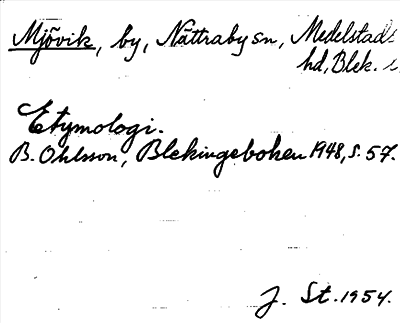 Mjövik, by, Nättraby sn, Medelstads
hd, Blek.
Etymologi.
B. Ohlsson, Blekingeboken 1948, s. 57.
J. St. 1954.